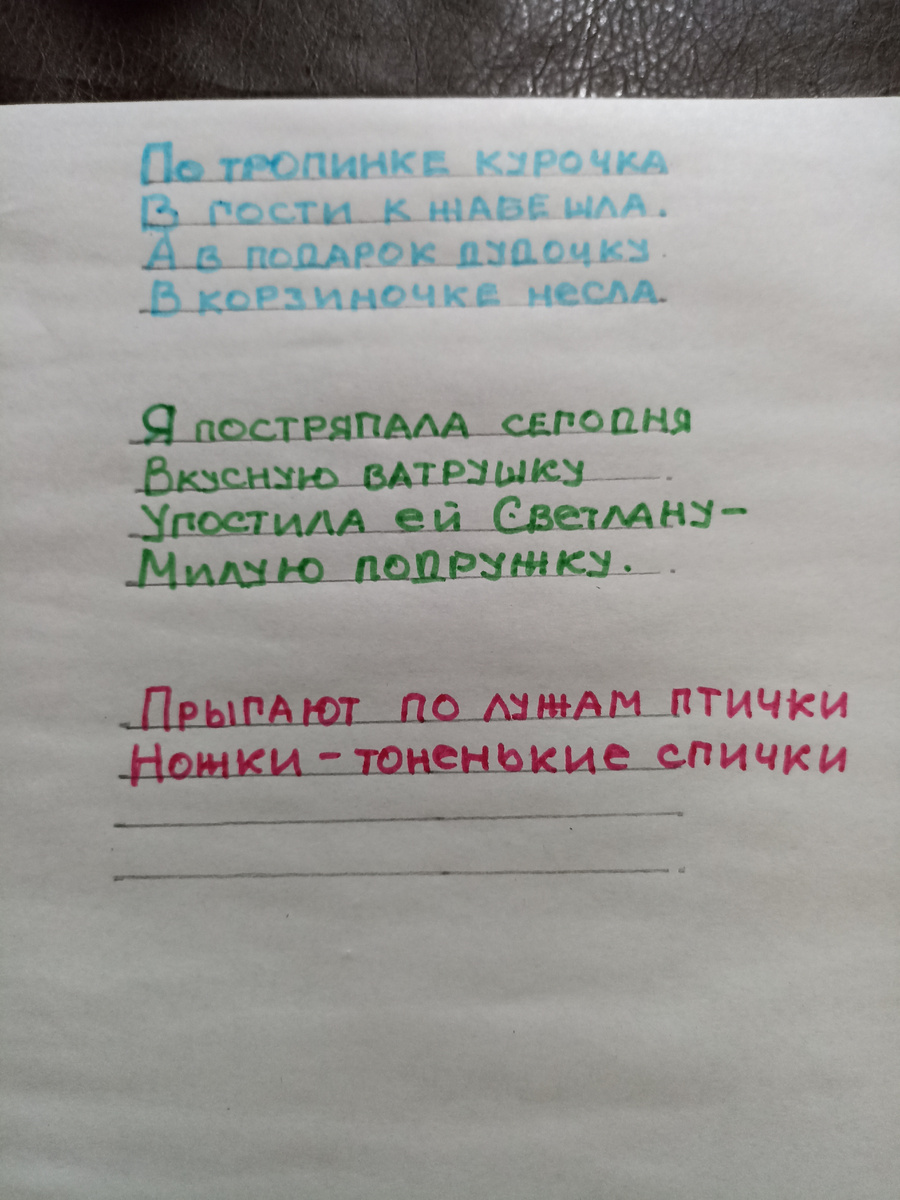 По тропинке курочка
В гости к жабе шла.
А в подарок дудочку
В корзиночке несла.
Я постряпала сегодня
Вкусную ватрушку
Угостила ей Светлану-
Милую подружку.
Прыгают по лужам птички
Ножки - тоненькие спички